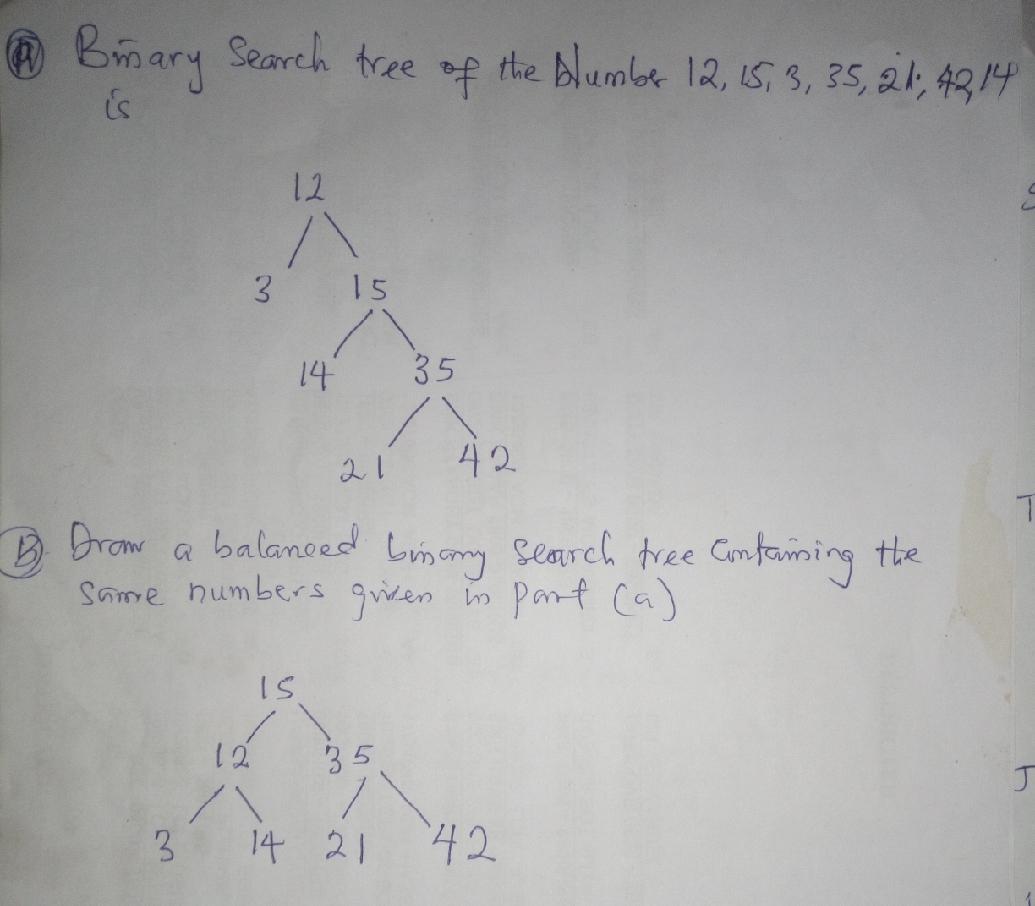 (A) Binary Search tree of the Number 12, 15, 3, 35, 21, 42, 14
is
12
3 15
14 35
21 42
(B). Draw a balanced binary search tree Containing the
same numbers given in part (a)
15
12 35
3 14 21 42